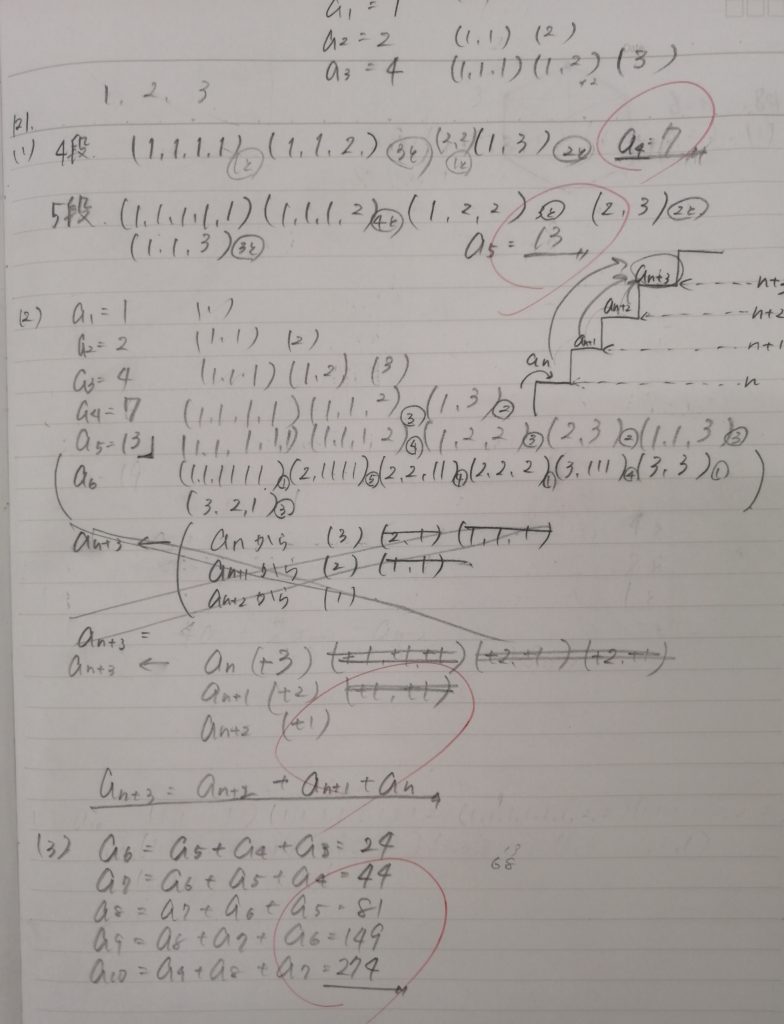 a1 = 1
a2 = 2 (1,1) (2)
a3 = 4 (1.1.1) (1,2) (3)
1, 2, 3
(1) 4段 (1,1,1,1) (1,1,2,) (2,2) (1,3) a4=7
5段 (1,1,1,1,1) (1,1,1,2) (1,2,2) (2,3)
(1.1.3) a5 = 13
(2) a1 = 1 (1)
a2= 2 (1.1) (2)
a3= 4 (1.1.1) (1,2) (3)
a4=7 (1,1,1,1) (1,1,2) ③ (1,3) ②
a5=13 (1,1,1,1,1) (1,1,1,2) ④ (1,2,2) ③ (2,3) ② (1.1,3) ③
a6 (1.1.1111) ① (2,1111) ⑤ (2,2,11) (2,2,2) ① (3,111) ④ (3,3) ①
(3.2,1)
an an+1 an+2 an+3
n n+1 n+2
an+3 ← an から (3) (2,1) (1,1,1)
an+1 から (2) (1,1)
an+2 から (1)
an+3 =
an+3 ← an (+3) (+1,+1,+1) (+2,+1) (+2,+1)
an+1 (+2) (+1,+1)
an+2 (+1)
an+3 = an+2 + an+1 + an
(3) a6 = a5 + a4 + a3 = 24
a7 = a6 + a5 + a4 = 44
a8 = a7 + a6 + a5 = 81
a9 = a8 + a7 + a6 = 149
a10 = a9 + a8 + a7 = 274